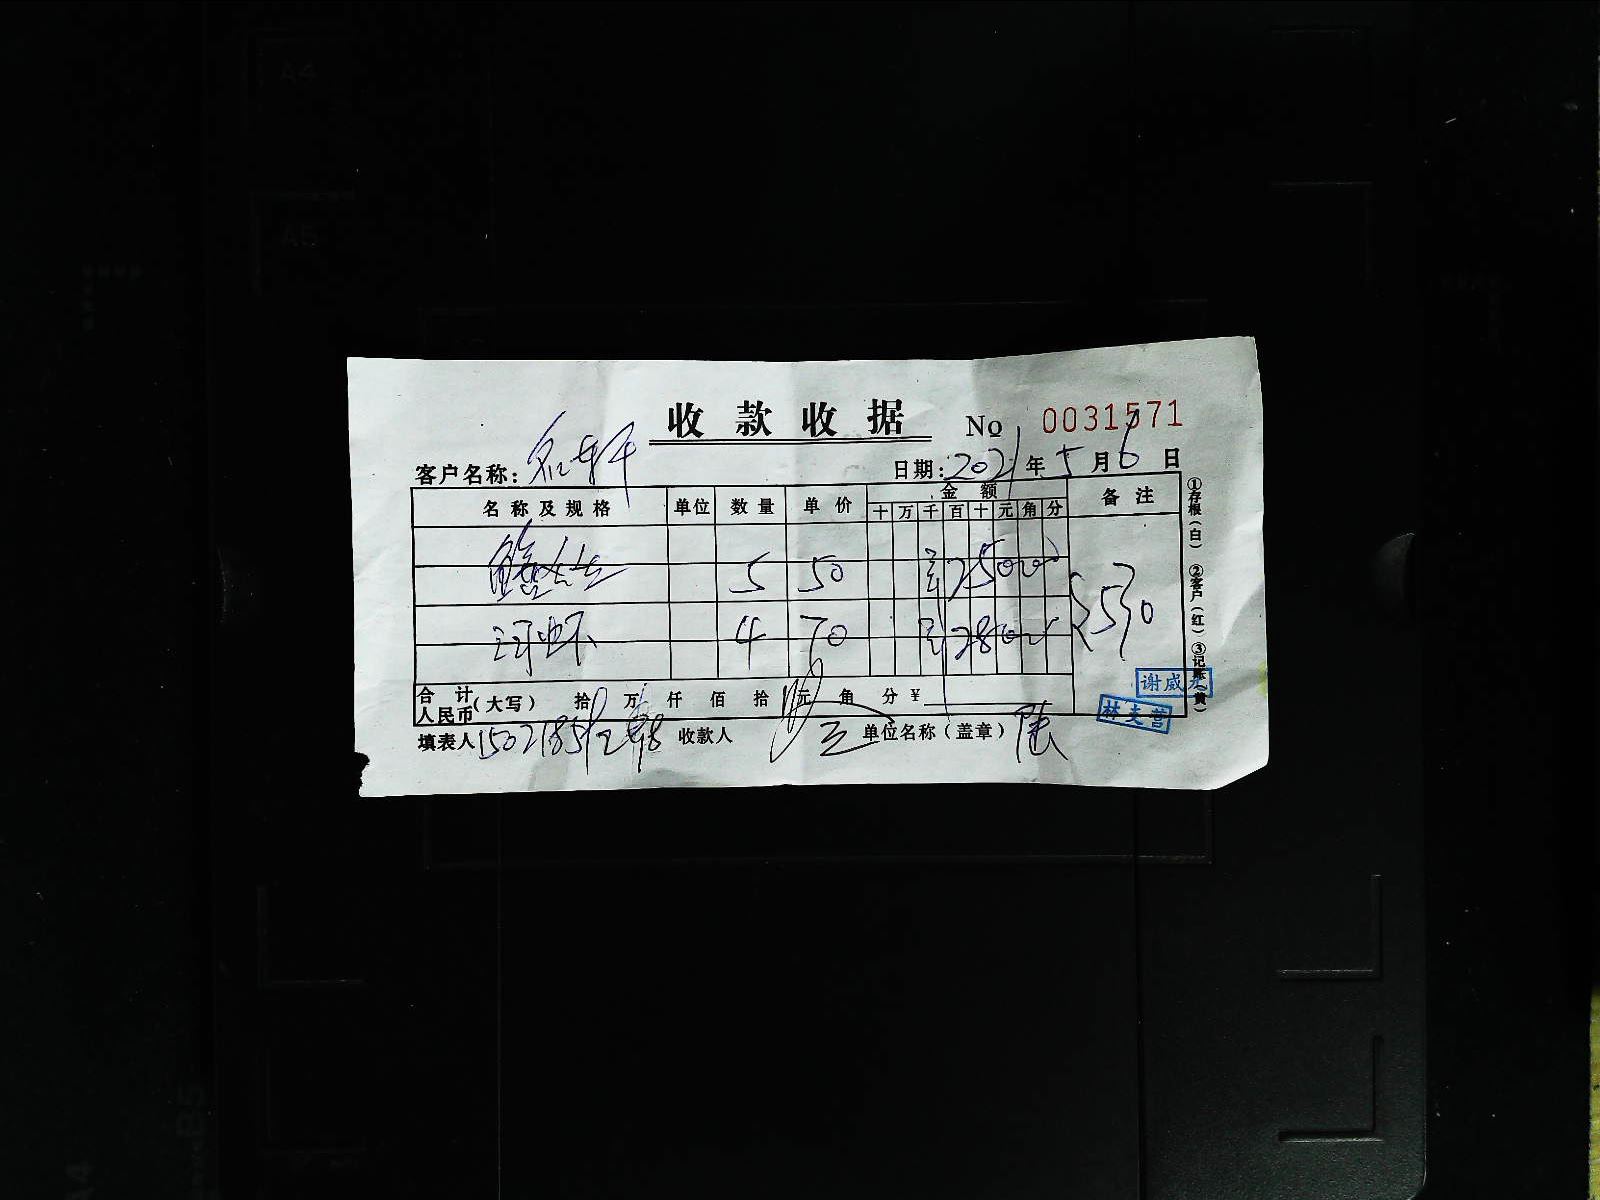 收款收据 No 0031571
客户名称: 日期: 2021年5月6日
名称及规格 单位 数量 单价 金额 备注
十 万 千 百 十 元 角 分
鳝丝 5 50 25000
4 70 28000
530
合计人民币(大写) 拾 万 仟 佰 拾 元 角 分 ¥
填表人 收款人 单位名称(盖章)
①存根(白) ②客户(红) ③记账(黄)
谢威
林夫营